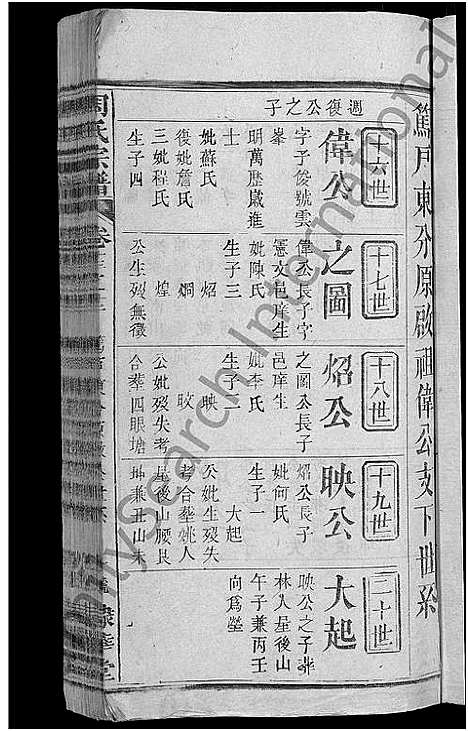 篤戶東分原啟祖偉公支下世系
週復公之子
十六世
偉公
字予俊號雲
峯
明萬歷歲進
士
妣蘇氏
復妣詹氏
三妣程氏
生子四
十七世
之圖
偉公長子字
憲文邑庠生
妣陳氏
生子三
炤
烱
煌
公生歿無徵
十八世
炤公
之圖公長子
邑庠生
妣李氏
生子二
映
旼
公妣歿失考
合塟四眼塘
十九世
映公
炤公長子
妣何氏
生子一
大起
公妣生歿失
考合塟姚人
屋後山腰艮
坤兼丑山未
二十世
大起
映公之子塟
林人屋後山
午子兼丙壬
向爲塋
周氏宗譜
卷
堂
UnitySearch International